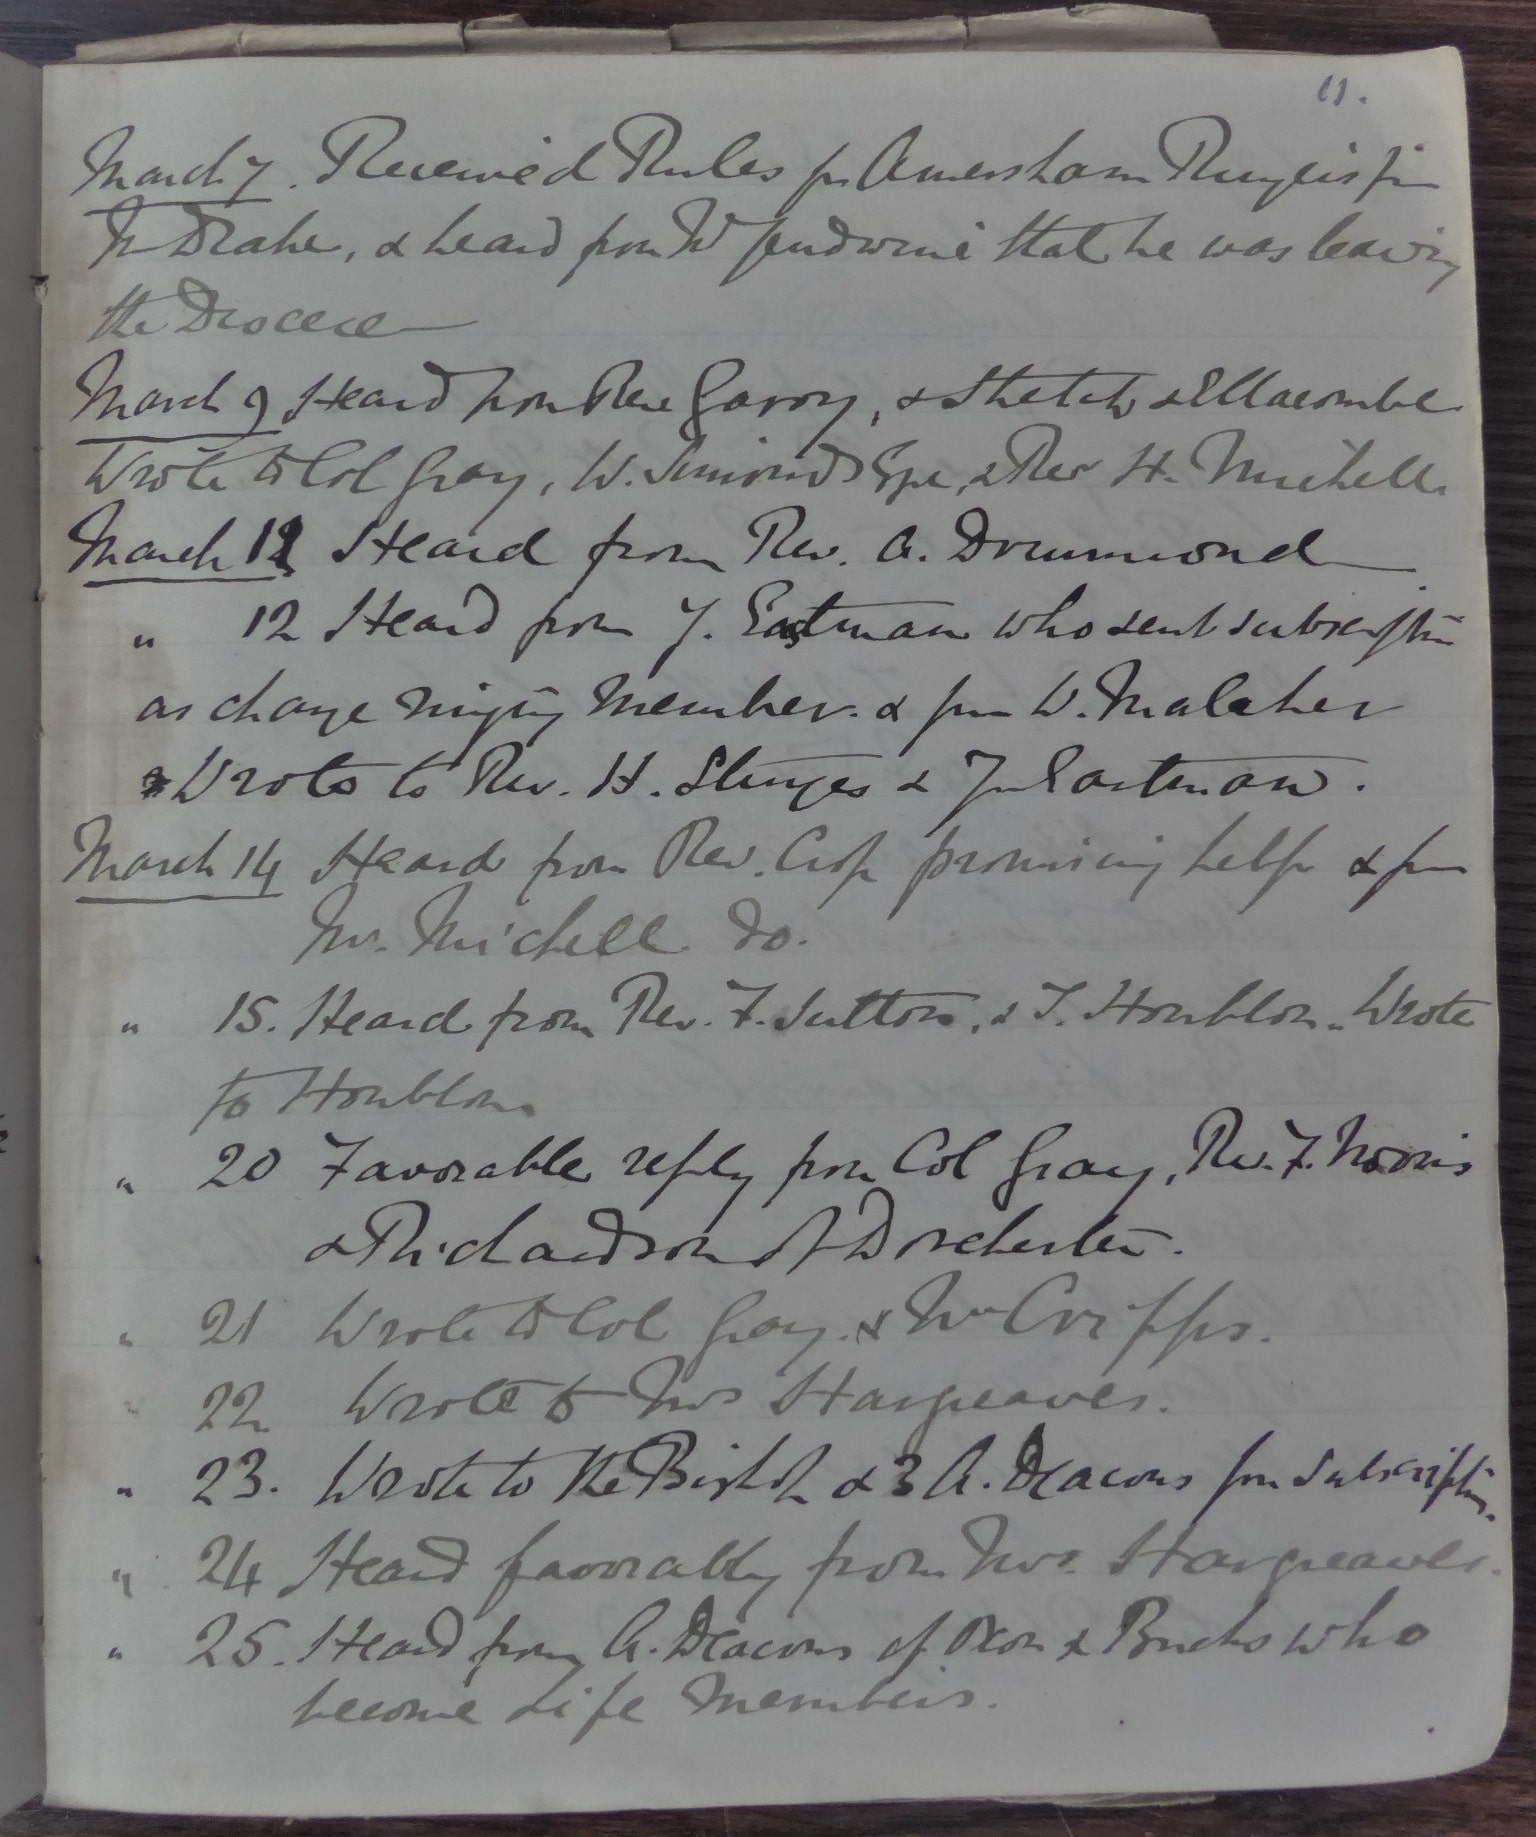 11.
March 7. Received Rules for Amersham Ringers from
Mr Drake, & heard from W Jendwine that he was leaving
the Diocese
March 9 Heard from Rev Garry, & Sketch & Ellacombe
Wrote to Col Gray, W. Simonds Esqe, & Rev H. Michell.
March 12 Heard from Rev. A. Drummond
" 12 Heard from J. Eastman who sent subscription
as change ringing member. & from W. Malaher
Wrote to Rev. H. Sturges & J Eastman.
March 14 Heard from Rev. promising help & from
Mr. Michell do.
" 15. Heard from Rev. F. Sutton, & T. Houblon. Wrote
to Houblon.
" 20 Favorable reply from Col Gray, Rev. F. Norris
& Richardson of Dorchester.
" 21 Wrote to Col Gray. & Mr Cripps.
" 22 Wrote to Mrs Hargreaves.
" 23. Wrote to the Bishop & 3 A. Deacons for subscription.
" 24 Heard favorably from Mrs. Hargreaves.
" 25. Heard from A. Deacons of Oxon & Bucks who
become Life Members.